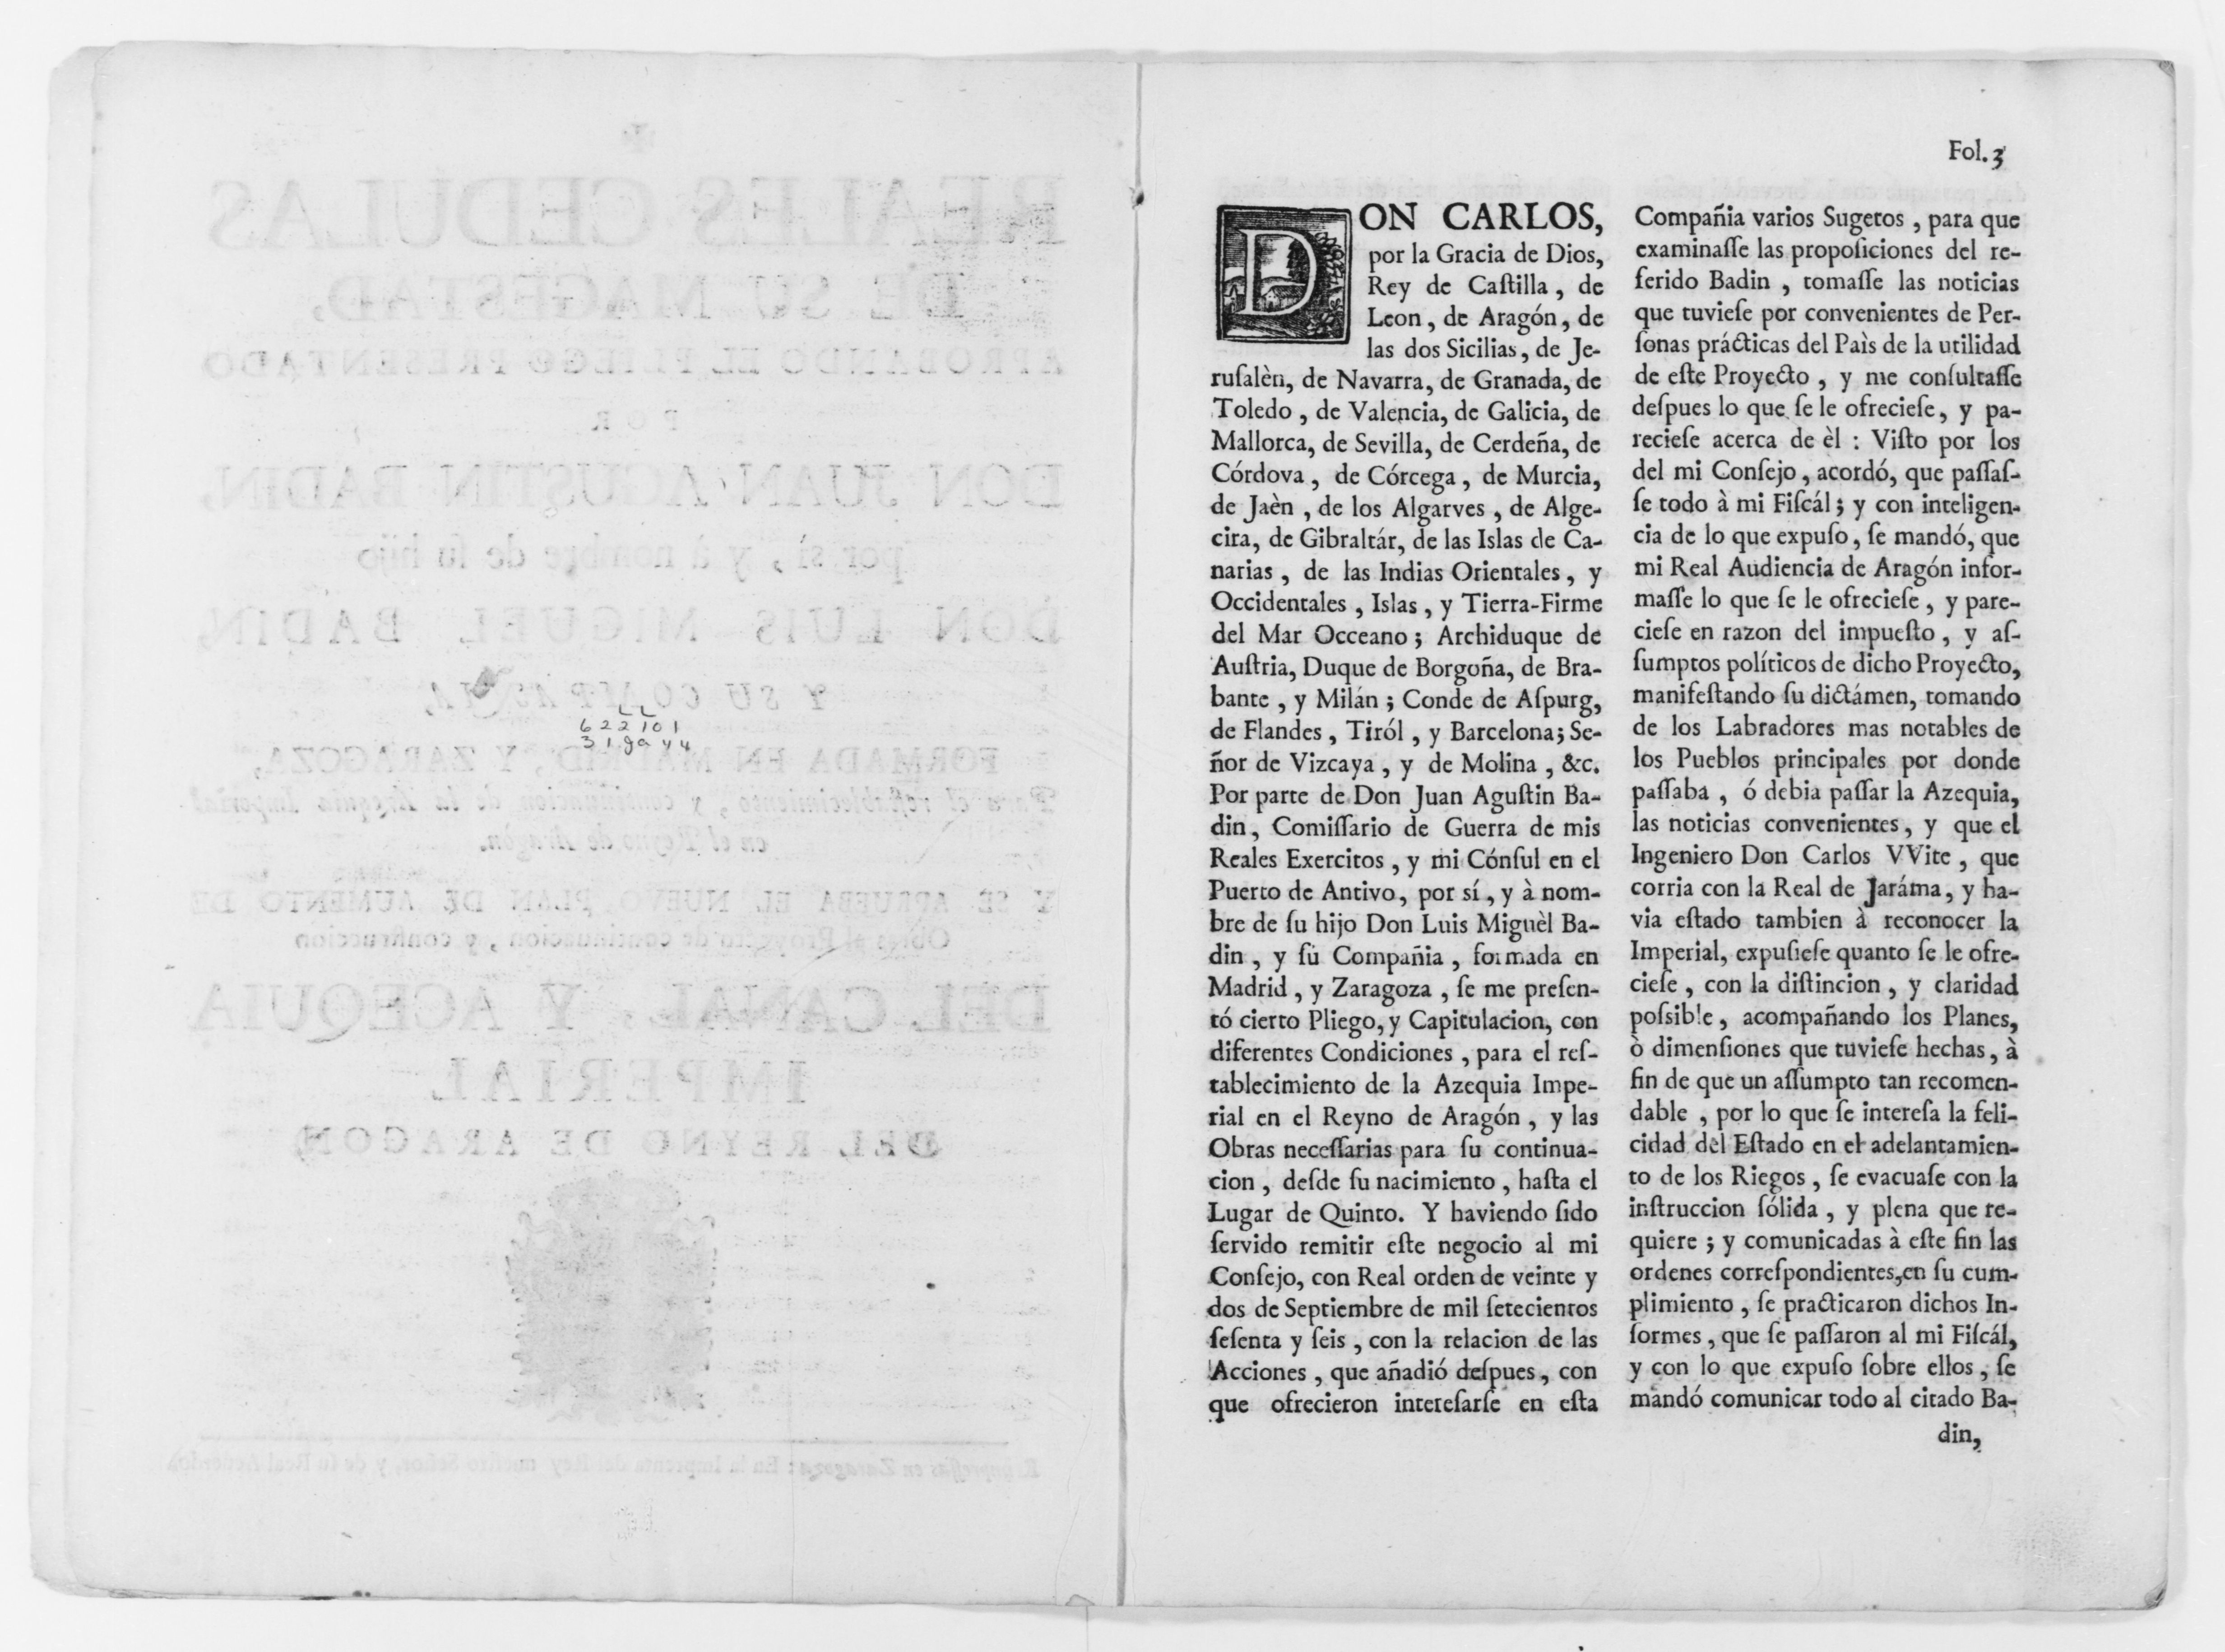 622101
Fol. 3
DON CARLOS,
por la Gracia de Dios,
Rey de Caſtilla, de
Leon, de Aragón, de
las dos Sicilias, de Je-
ruſalèn, de Navarra, de Granada, de
Toledo, de Valencia, de Galicia, de
Mallorca, de Sevilla, de Cerdeña, de
Córdova, de Córcega, de Murcia,
de Jaèn, de los Algarves, de Alge-
cira, de Gibraltár, de las Islas de Ca-
narias, de las Indias Orientales, y
Occidentales, Islas, y Tierra-Firme
del Mar Occeano; Archiduque de
Auſtria, Duque de Borgoña, de Bra-
bante, y Milán; Conde de Aſpurg,
de Flandes, Tiról, y Barcelona; Se-
ñor de Vizcaya, y de Molina, &c.
Por parte de Don Juan Aguſtin Ba-
din, Comiſſario de Guerra de mis
Reales Exercitos, y mi Cónſul en el
Puerto de Antivo, por sí, y à nom-
bre de ſu hijo Don Luis Miguèl Ba-
din, y ſu Compañia, formada en
Madrid, y Zaragoza, ſe me preſen-
tó cierto Pliego, y Capitulacion, con
diferentes Condiciones, para el reſ-
tablecimiento de la Azequia Impe-
rial en el Reyno de Aragón, y las
Obras neceſſarias para ſu continua-
cion, deſde ſu nacimiento, haſta el
Lugar de Quinto. Y haviendo ſido
ſervido remitir eſte negocio al mi
Conſejo, con Real orden de veinte y
dos de Septiembre de mil ſetecientos
ſeſenta y ſeis, con la relacion de las
Acciones, que añadió deſpues, con
que ofrecieron intereſarſe en eſta
Compañia varios Sugetos, para que
examinaſſe las propoſiciones del re-
ferido Badin, tomaſſe las noticias
que tuvieſe por convenientes de Per-
ſonas prácticas del Paìs de la utilidad
de eſte Proyecto, y me conſultaſſe
deſpues lo que ſe le ofrecieſe, y pa-
recieſe acerca de èl: Viſto por los
del mi Conſejo, acordó, que paſſaſ-
ſe todo à mi Fiſcál; y con inteligen-
cia de lo que expuſo, ſe mandó, que
mi Real Audiencia de Aragón infor-
maſſe lo que ſe le ofrecieſe, y pare-
cieſe en razon del impueſto, y aſ-
ſumptos políticos de dicho Proyecto,
manifeſtando ſu dictámen, tomando
de los Labradores mas notables de
los Pueblos principales por donde
paſſaba, ó debia paſſar la Azequia,
las noticias convenientes, y que el
Ingeniero Don Carlos VVite, que
corria con la Real de Jaráma, y ha-
via eſtado tambien à reconocer la
Imperial, expuſieſe quanto ſe le ofre-
cieſe, con la diſtincion, y claridad
poſsible, acompañando los Planes,
ò dimenſiones que tuvieſe hechas, à
fin de que un aſſumpto tan recomen-
dable, por lo que ſe intereſa la feli-
cidad del Eſtado en el adelantamien-
to de los Riegos, ſe evacuaſe con la
inſtruccion ſólida, y plena que re-
quiere; y comunicadas à eſte fin las
ordenes correſpondientes, en ſu cum-
plimiento, ſe practicaron dichos In-
formes, que ſe paſſaron al mi Fiſcál,
y con lo que expuſo ſobre ellos, ſe
mandó comunicar todo al citado Ba-
din,